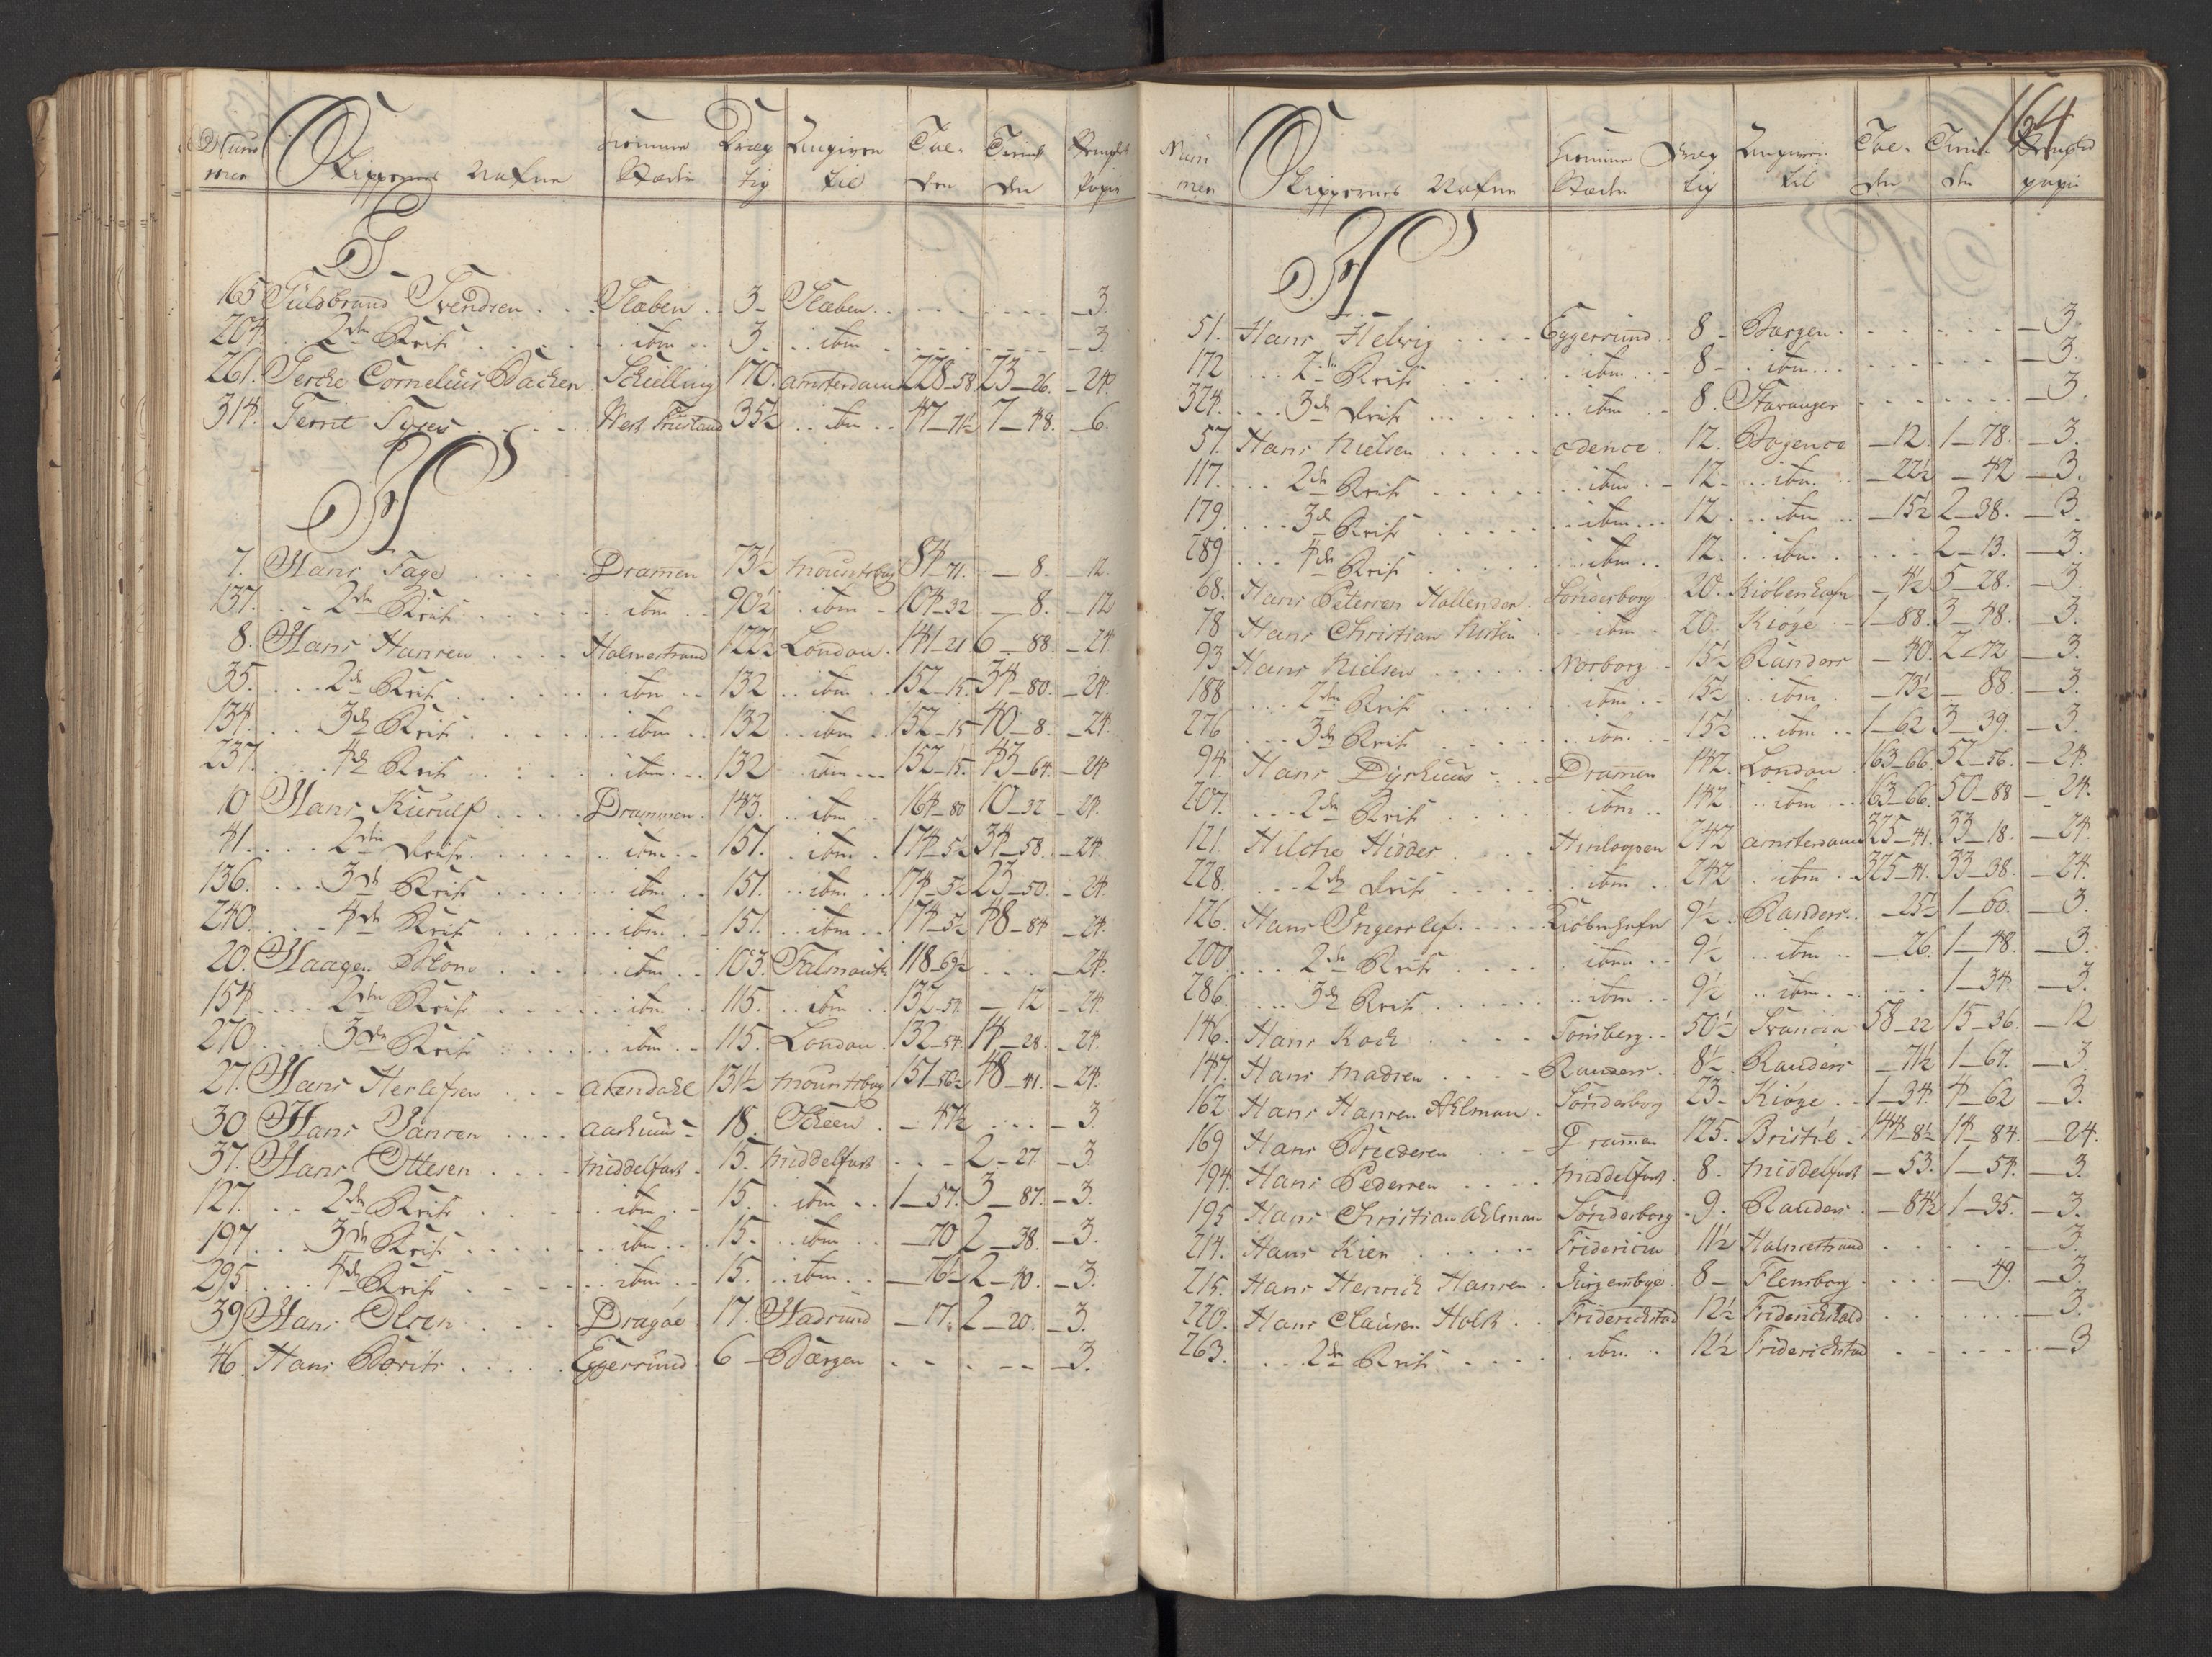 Num Skippernes Nafne Hiemme Dræg Angiven Tol- Tiend Stemplet
mer Stæder tig til den den Papir
G
165 Guldbrand Svendsen Slæben 3 Slæben 3
204 2den Reise ibm 3 ibm 3
261. Gerche Cornelius Backer Schelling 170 amsterdam 228-58 23-26. 24
314. Gerrit West Friesland 35½ ibm 47-71½ 7-48. 6.
H
7. Hans Fage Dramen 73½ 84-71. 8. 12
137. 2den Reise ibm 90½ ibm 104-32 8. 12
8. Hans Hansen Holmestrand 122½ London 141-21 6-88. 24.
35. 2den Reise ibm 132 ibm 152-15 34-80. 24.
134. 3de Reise ibm 132 ibm 152-15 40-8. 24.
237. 4de Reise ibm 132 ibm 152-15. 43-64. 24
10 Hans Kierulf Drammen. 143. ibm 164-80 10-32 24.
41. 2den Reise ibm 151. ibm 174-52 34-58. 24
136. 3de Reise ibm 151. ibm 174-52 23-50. 24.
240. 4de Reise ibm 151. ibm 174-52 48-84 24.
20. Haagen ibm 103. Falmouth 118-69½ 24.
154 2den Reise ibm 115. ibm 132-54. 12 24.
270 3de Reise ibm 115. London 132-54 14-28. 24.
27. Hans Herlofsen arendahl 131½ 151-56½ 48-41. 24.
30 Hans Jansen aarhuus 18. Scheen 47½ 3.
37. Hans Ottesen Middelfart 15. Middelfart 2-27. 3.
127. 2den Reise ibm 15. ibm 1-57. 3-87. 3.
197 3de Reise ibm 15. ibm 70 2-38. 3.
295 4de Reise ibm 15. ibm 76½ 2-40. 3.
39 Hans Olsen Dragöe 17. Hadsund 17. 2-20. 3.
46. Hans Eggersund 6 Bærgen 3.
164
Num Skippernes Nafne Hiemme Dræg Angiven Tol- Tien Stemplet
mer Stæder tig til den den papir
H
51. Hans Helvig Eggersund 8 Bærgen 3.
172 2den Reise ibm 8 ibm 3.
324. 3de Reise ibm 8. Stavanger 3.
57. Hans Nielsen odence 12. Bogence 12. 1-78. 3.
117. 2den Reise ibm 12 ibm 22½ 42 3.
179. 3de Reise ibm 12 ibm 15½ 2-38. 3.
289 4de Reise ibm 12. ibm 2-13. 3.
68. Hans Petersen Hollender Sönderborg 20. Kiöbenhafn 4½ 5-28. 3.
78 Hans Christian ibm 20. Kiöge 1-88. 3-48. 3.
93 Hans Nielsen Norborg 15½ Randers 40. 2-72 3.
188 2den Reise ibm 15½ ibm 73½ 88. 3.
276 3de Reise ibm 15½ ibm 1-62 3-39. 3.
94. Hans Dyrhuus Dramen 142. London 163-66. 52-56. 24.
207. 2den Reise ibm 142 ibm 163-66. 50-88 24.
121. Hilche Hidder Hinlopen 242 amsterdam 325-41. 33-18. 24.
228. 2den Reise ibm 242 ibm 325-41. 33-38. 24.
126. Hans Ingerslef Kiöbenhafn 9½ Randers 25½ 1-60. 3.
200. 2den Reise ibm 9½ ibm 26. 1-48. 3.
286. 3de Reise ibm 9½ ibm 1-34. 3.
146. Hans Koch Tönsberg 50½ Francia 58-22 15-36. 12
147. Hans Madsen Randers 8½ Randers 71½ 1-67. 3.
162 Hans Hansen Ahlman Sönderborg 23 Kiöge 1-34. 4-62 3.
169 Hans Dramen 125. Bristol 144-8½ 14-84. 24.
194. Hans Pedersen Middelfart 8. Middelfart 53. 1-54. 3.
195 Hans Christian ahlman Sönderborg 9. Randers 84½ 1-35. 3.
214. Hans Kier Fridericia 11½ Holmestrand 3.
215. Hans Henrich Hansen Jurgensbye 8 Flensborg 49. 3.
220. Hans Clausen Holst Friderichstad 12½ Friderichshald 3.
263. 2den Reise ibm 12½ Friderichstad 3